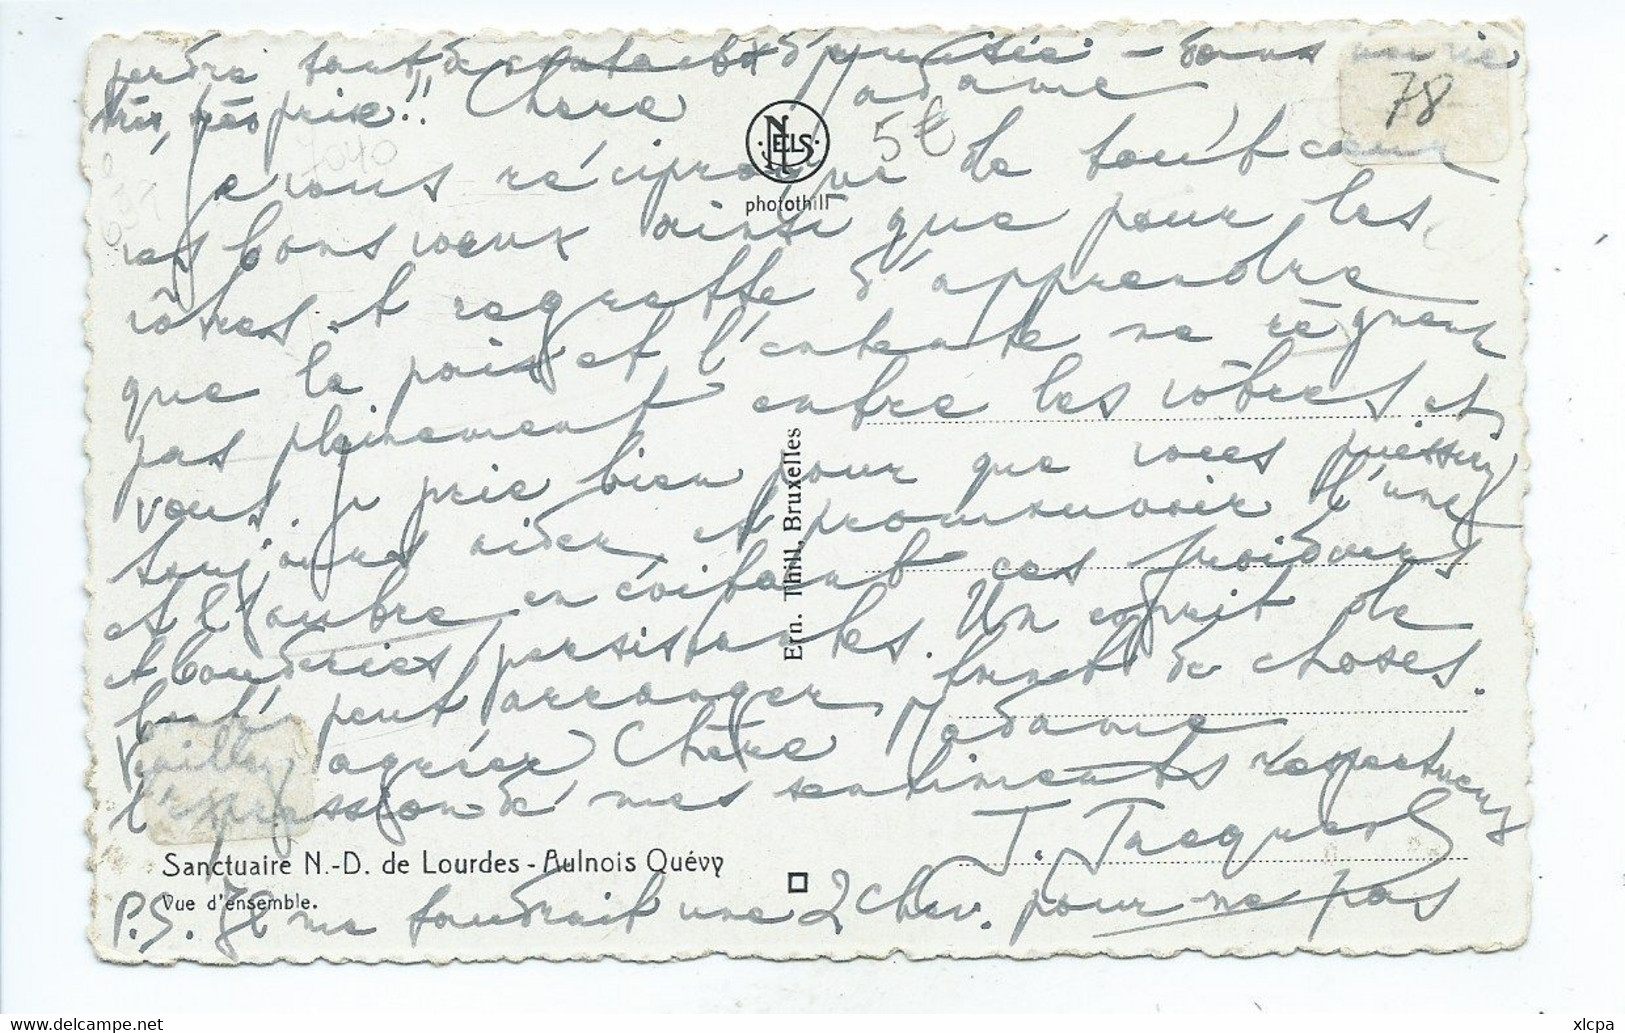 perdre tant de contacts et d'amitié - dans
très, très prise!! Chère Madame
78
5€
7040
NELS
photothill
Je vous réciproque de tout cœur
vos bons vœux ainsi que pour les
vôtres et regrette d'apprendre
que la paix et l'entente ne règnent
pas pleinement entre les vôtres et
vous. Je prie bien pour que vous puissiez
toujours aider et promouvoir l'une
et l'autre en évitant ces froideurs
et bouderies persistantes. Un esprit de
bonté peut arranger tant de choses.
Veuillez agréer Chère Madame
l'expression de mes sentiments respectueux
J. Jacques
Ern. Thill, Bruxelles
Sanctuaire N.-D. de Lourdes - Aulnois Quévy
Vue d'ensemble.
P.S. Il me faudrait une 2 chev. pour ne pas
delcampe.net
xlcpa